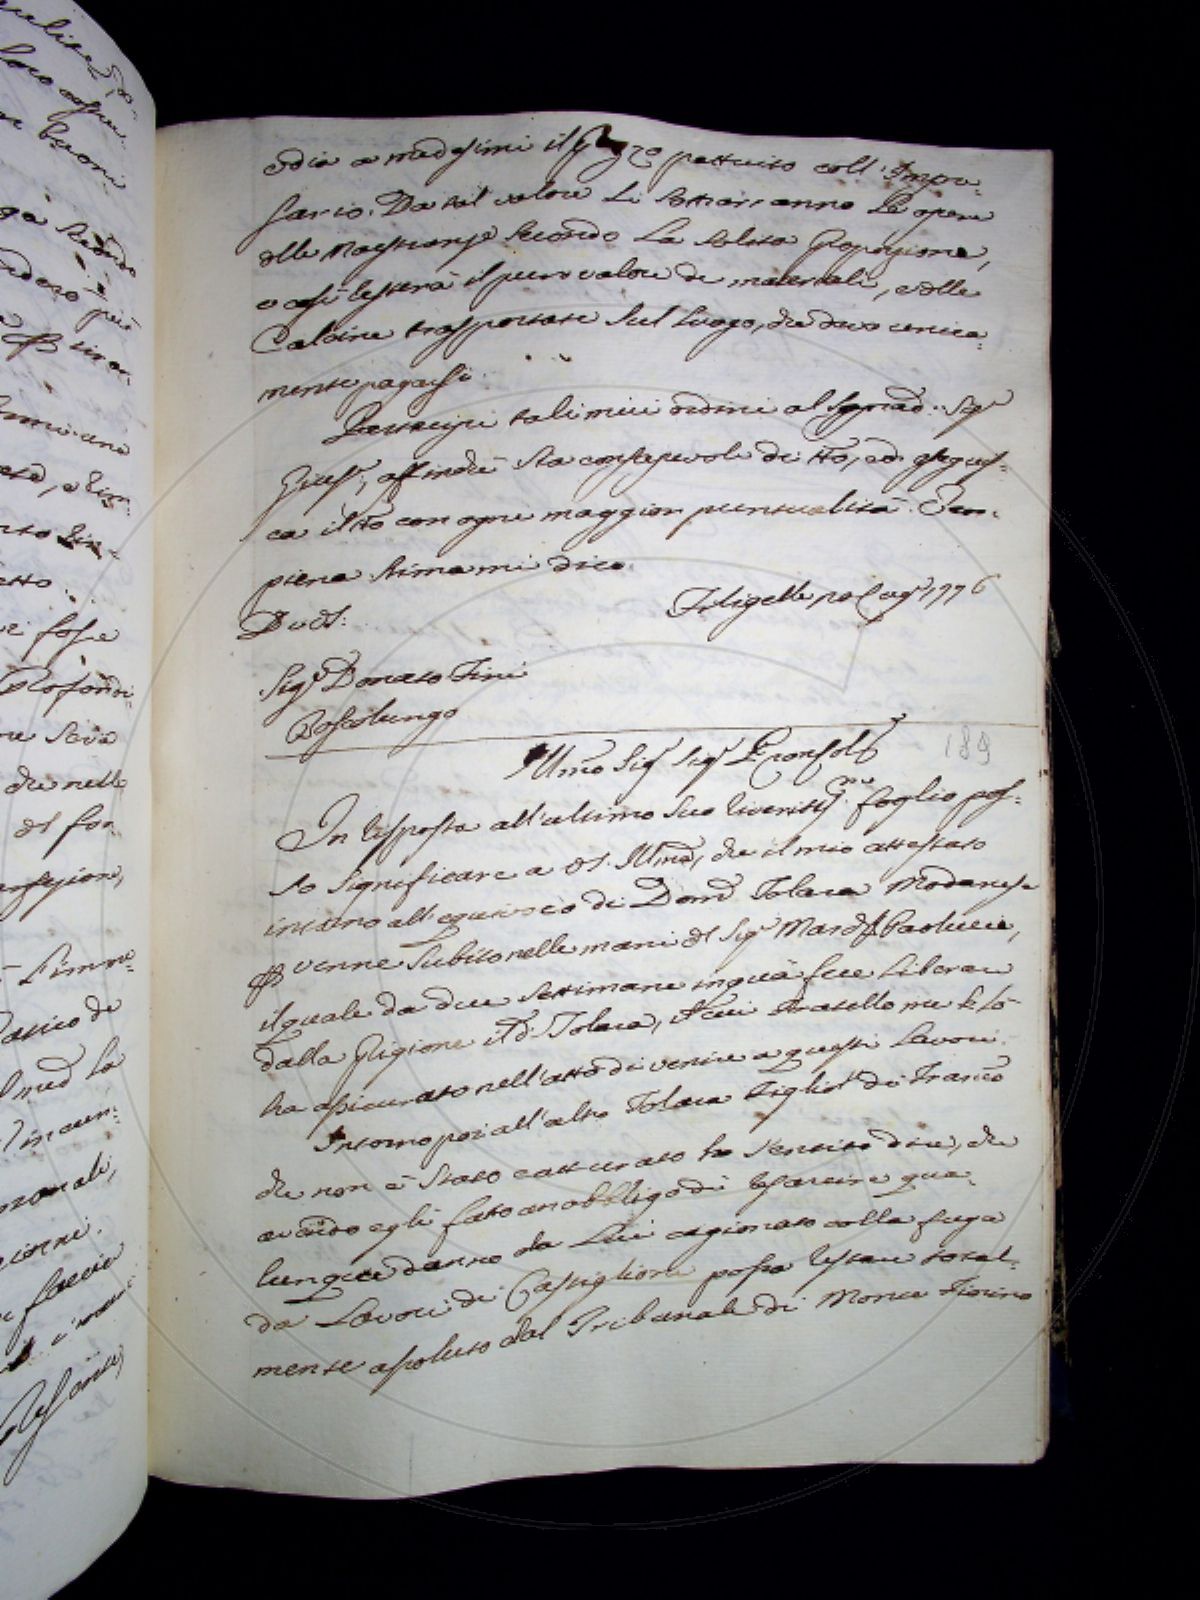 e dia a medesimi il prezzo pattuito coll' Impre=
sario. Da tal valore si sottrarranno le opere
delle Maestranze secondo la solita proporzione,
e così resterà il puro valore de materiali, e delle
Calcine trasportate sul luogo, che devo unica=
mente pagarsi.
Partecipi tali miei ordini al Sig.r
affinché sia consapevole di tto, ed eseguis=
ca il tto con ogni maggior puntualità. Con
piena stima mi dico.
Di VS:
Filigelle po Lug.o 1776
Sig.r Donato Fini
Boscolungo
189
Illmo Sig.r Sig.r P.rone
In risposta all'ultimo suo riveritis.mo foglio pos=
so significare a VS. Illma, che il mio attestato
intorno all' equivoco di Dom.co Tolaca Modanese
venne subito nelle mani del Sig.r March. Paolucci,
il quale da due settimane in quà fece liberare
dalla prigione il d.o Tolaca, il cui fratello me lo
ha assicurato nell'atto di venire a questi Lavori.
Intorno poi all' altro Tolaca figlio di Fran.co
che non è stato catturato ho sentito dire, che
avendo egli fatto un obbligo di risarcire qua=
lunque danno da Lui cagionato colla fuga
da Lavori di Castiglione possa restare total=
mente assoluto dal Tribunale di Monte Fiorino